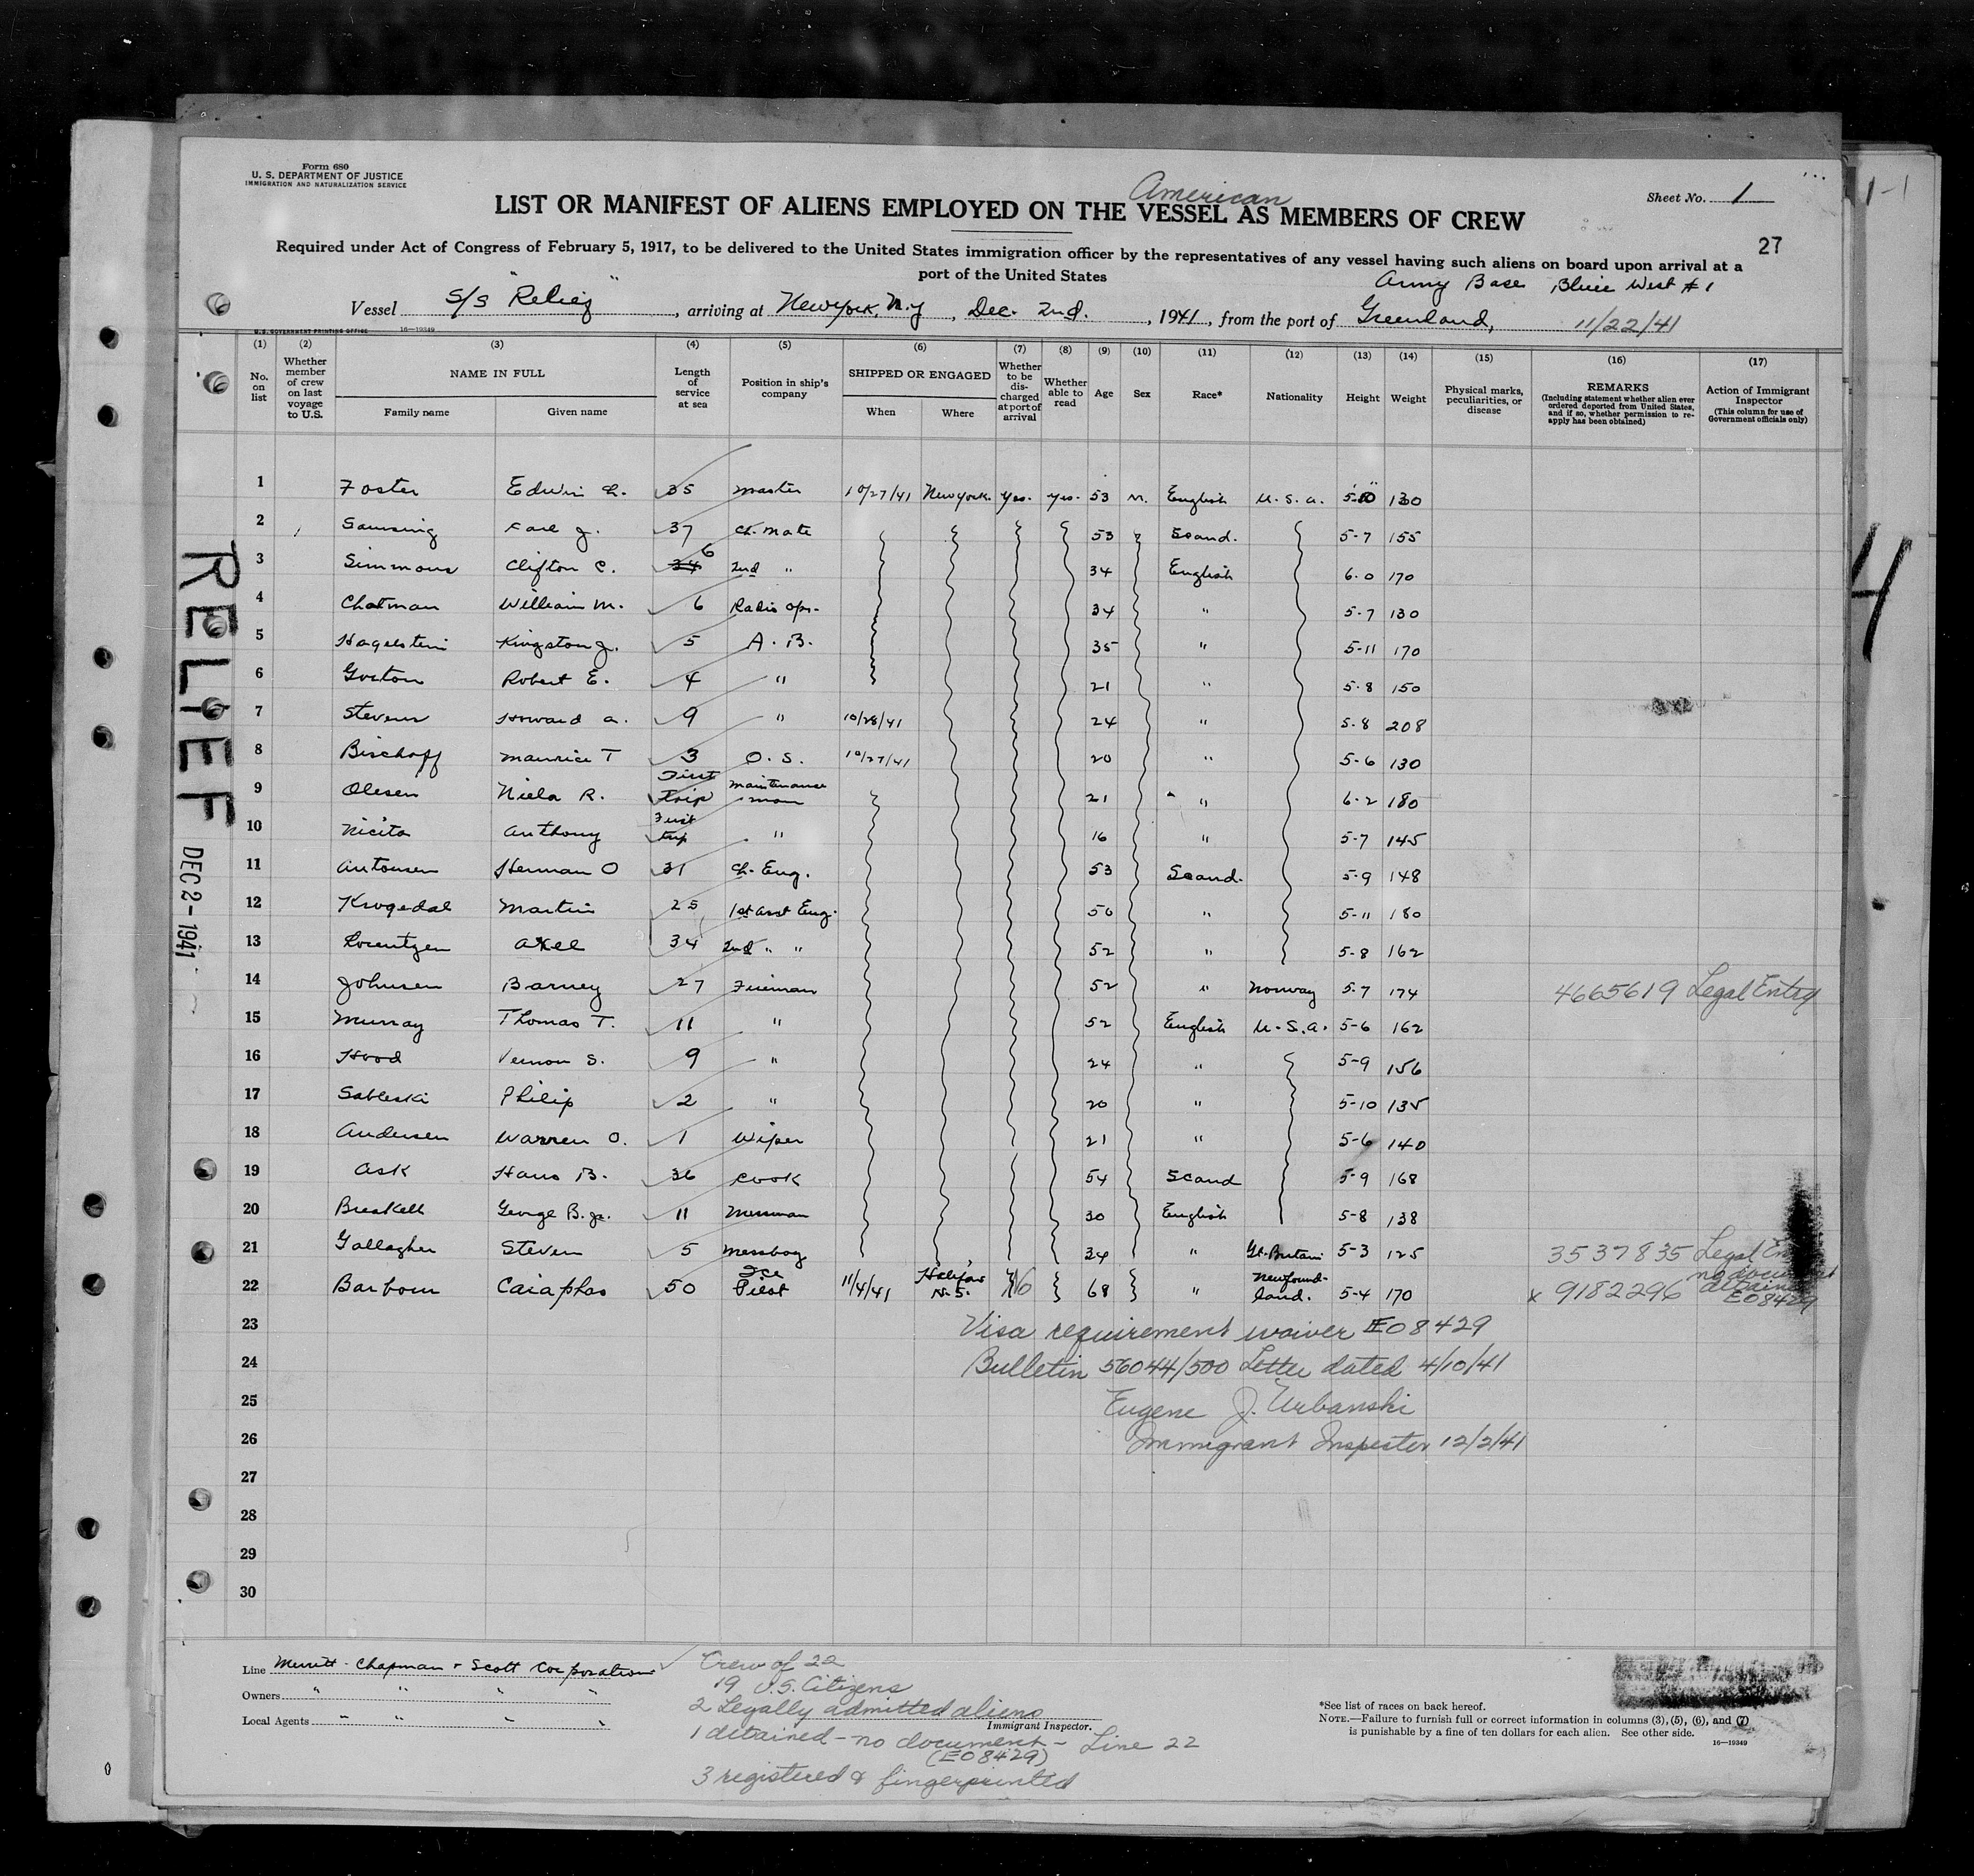 Form 680
U. S. DEPARTMENT OF JUSTICE
IMMIGRATION AND NATURALIZATION SERVICE
American
Sheet No. 1
LIST OR MANIFEST OF ALIENS EMPLOYED ON THE VESSEL AS MEMBERS OF CREW
27
Required under Act of Congress of February 5, 1917, to be delivered to the United States immigration officer by the representatives of any vessel having such aliens on board upon arrival at a
port of the United States
Army Base Bluie West #1
Vessel S/S "Relief", arriving at New York, N.Y, Dec. 2nd., 1941, from the port of Greenland, 11/22/41
U. S. GOVERNMENT PRINTING OFFICE 16—19349
(1) (2) (3) (4) (5) (6) (7) (8) (9) (10) (11) (12) (13) (14) (15) (16) (17)
No. on list
Whether member of crew on last voyage to U.S.
NAME IN FULL
Family name Given name
Length of service at sea
Position in ship's company
SHIPPED OR ENGAGED
When Where
Whether to be discharged at port of arrival
Whether able to read
Age Sex Race* Nationality Height Weight
Physical marks, peculiarities, or disease
REMARKS
(Including statement whether alien ever ordered deported from United States, and if so, whether permission to re-apply has been obtained)
Action of Immigrant Inspector
(This column for use of Government officials only)
1 Foster Edwin 35 Master 10/27/41 New York. Yes. Yes. 53 M. English U.S.A. 130
2 Karl J. 37 Ch. Mate 53 Scand. 5-7 155
3 Simmons Clifton C. 34 6 2nd " 34 English 6-0 170
4 Chatman William M. 6 Radio Opr. 34 " 5-7 130
5 Hagelstein Kingston J. 5 A. B. 35 " 5-11 170
6 Gorton Robert E. 4 " 21 " 5-8 150
7 Stevens Howard A. 9 " 10/28/41 24 " 5-8 208
8 Bischoff Maurice T 3 O. S. 10/27/41 20 " 5-6 130
9 Olesen Niels R. First trip Maintenance man 21 " 6-2 180
10 Nicita Anthony First trip " 16 " 5-7 145
11 Antonsen Herman O 31 Ch. Eng. 53 Scand. 5-9 148
12 Krogedal Martin 25 1st Asst Eng. 50 " 5-11 180
13 Lorentzen Axel 34 2nd " " 52 " 5-8 162
14 Johnsen Barney 27 Fireman 52 " Norway 5-7 174 4665619 Legal Entry
15 Murray Thomas T. 11 " 52 English U.S.A. 5-6 162
16 Hood Vernon S. 9 " 24 " 5-9 156
17 Sableski Philip 2 " 20 " 5-10 135
18 Andersen Warren O. 1 Wiper 21 " 5-6 140
19 Ask Hans B. 36 Cook 54 Scand 5-9 168
20 Breakell George B. Jr. 11 Messman 30 English 5-8 138
21 Gallagher Steven 5 Messboy 34 " Gt. Britain 5-3 125 3537835 Legal
22 Barbour Caiaphas 50 Ice Pilot 11/4/41 Halifax N.S. No 68 " Newfoundland. 5-4 170 x 9182296 no document detained E08429
23 Visa requirement waiver E08429
24 Bulletin 56044/500 Letter dated 4/10/41
25 Eugene J. Urbanski
26 Immigrant Inspector 12/2/41
27
28
29
30
RELIEF
DEC 2-1941
4
Line Merritt-Chapman & Scott Corporation
Owners " " " "
Local Agents " " " "
Crew of 22
19 U.S. Citizens
2 Legally admitted aliens
Immigrant Inspector.
1 detained - no document - Line 22
(E08429)
3 registered & fingerprinted
*See list of races on back hereof.
NOTE.—Failure to furnish full or correct information in columns (3), (5), (6), and (7)
is punishable by a fine of ten dollars for each alien. See other side.
16—19349